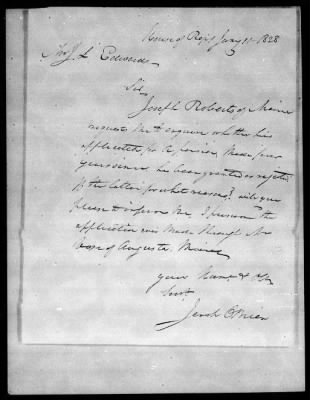 House of Rep's Jany 11. 1828
Thos J. L. Edwards
Sir
Joseph Roberts of Maine
requests me to enquire whether his
application for a pension made four
years since has been granted or rejected
if the latter for what reason? will you
please to inform me, I presume the
application was made through Mr
of Augusta, Maine
your
Servt
Jerh O'Brien